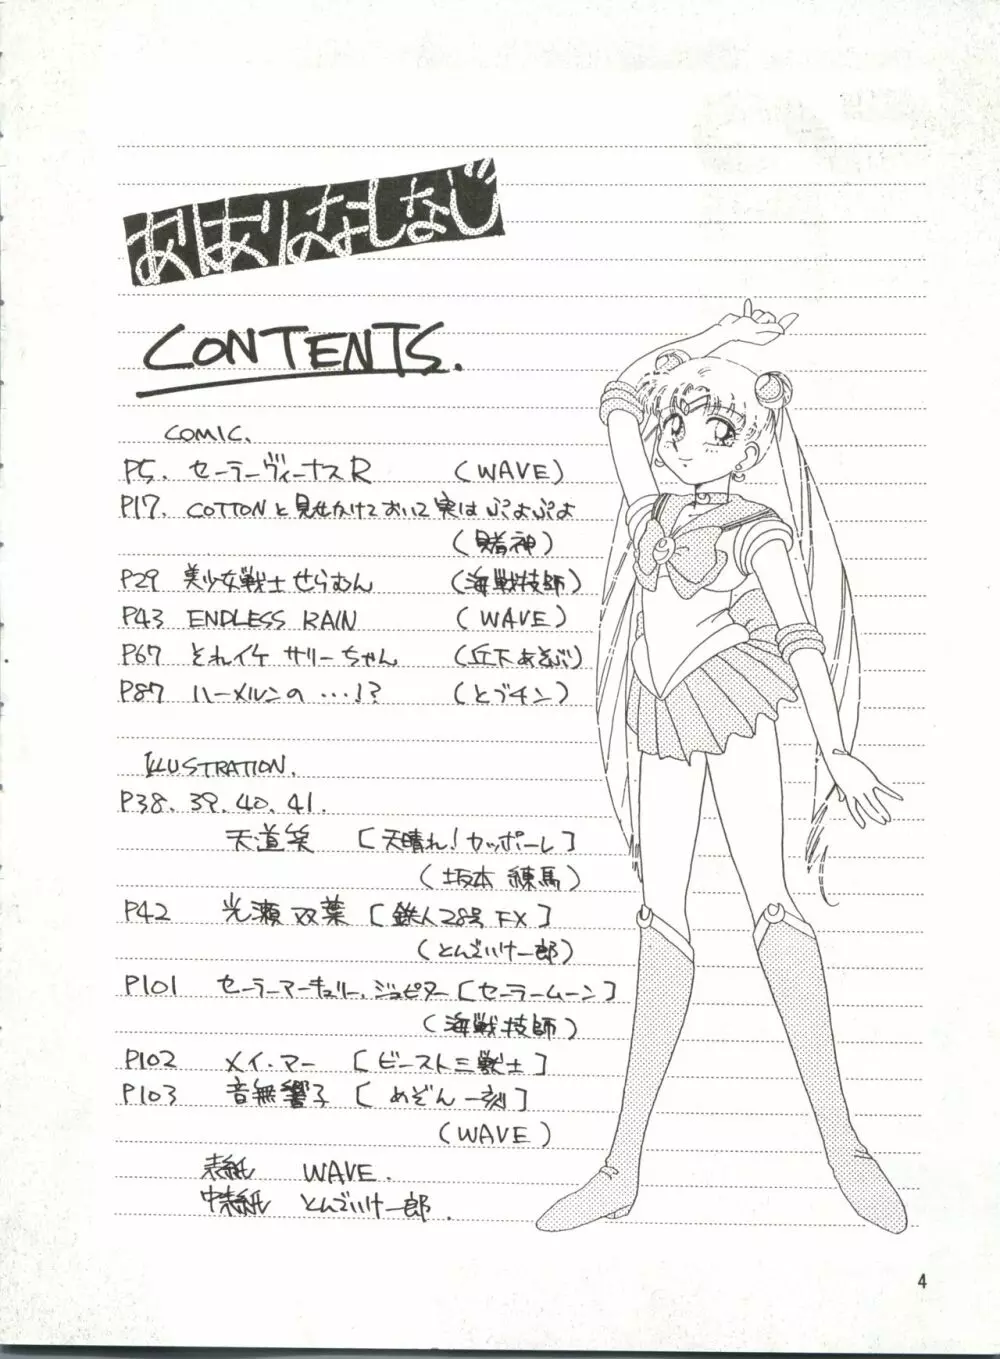 CONTENTS.
COMIC.
P5. セーラーヴィーナスR (WAVE)
P17. COTTONと見せかけておいて実はぷよぷよ
(賭神)
P29 美少女戦士せらむん (海戦技師)
P43 ENDLESS RAIN (WAVE)
P67 それイケ サリーちゃん (丘下あそぶ)
P87 ハーメルンの …!? (とブチン)
ILLUSTRATION.
P38.39.40.41.
天道笑 [天晴れ!カッポーレ]
(坂本 練馬)
P42 光瀬 双葉 [鉄人28号 FX]
(とんでいけ一郎)
P101 セーラーマーキュリー.ジュピター[セーラームーン]
(海戦技師)
P102 メイ・マー [ビースト三獣士]
P103 音無響子 [めぞん一刻]
(WAVE)
表紙 WAVE.
中表紙 とんでいけ一郎.
4